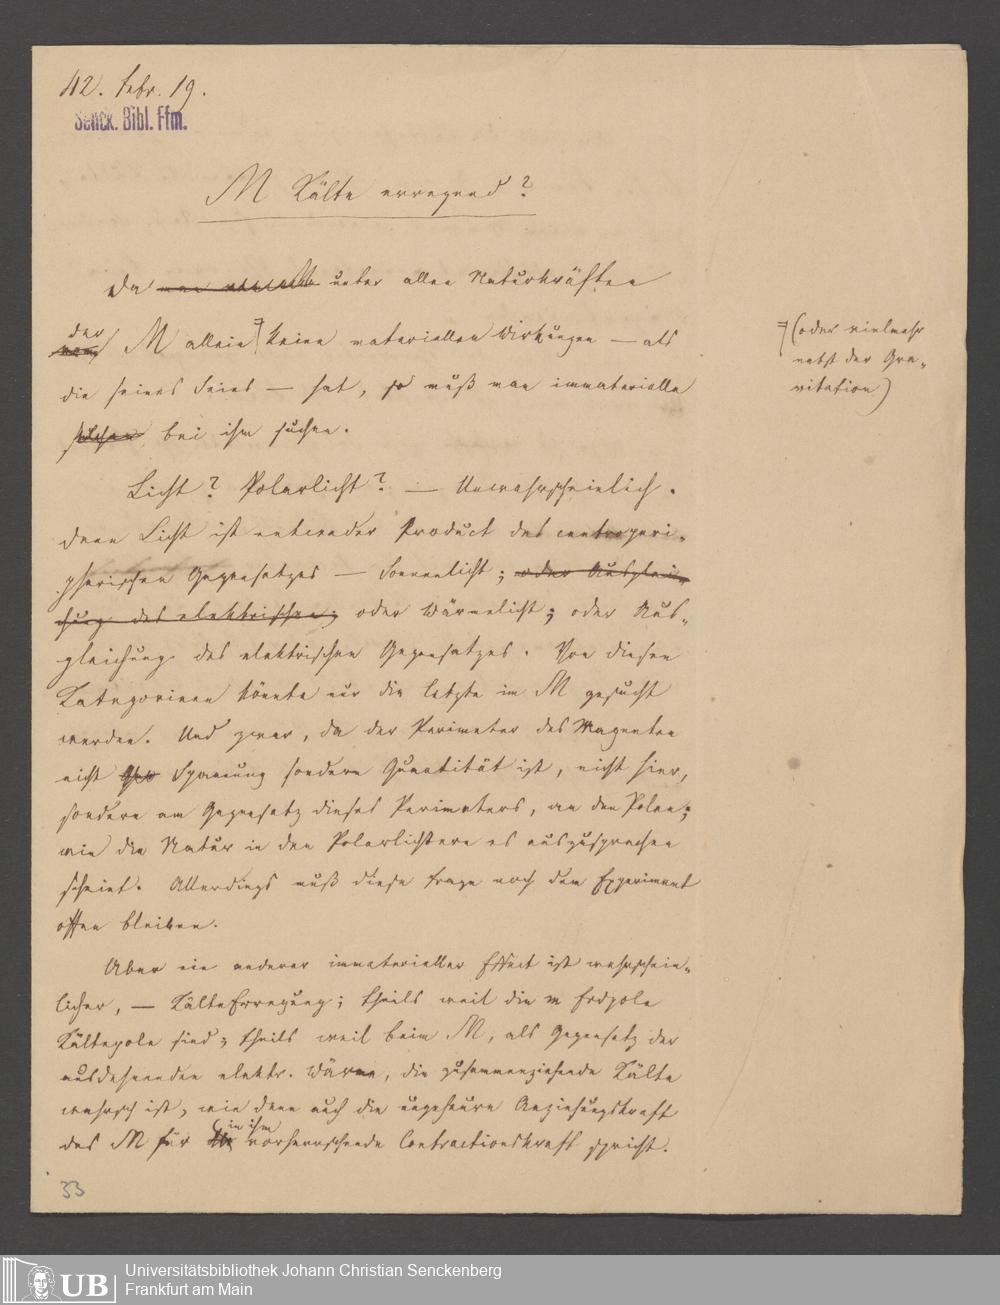 42. Febr. 19.
Senck. Bibl. Ffm.
M Kälte erregend?
Da unter allen Naturkräften
der M allein keine materiellen Wirkungen — als
(oder vielmehr
nebst der Gra-
vitation)
die seines Seins — hat, so muß man immaterielle
bei ihm suchen.
Licht? Polarlicht? — Unwahrscheinlich.
Denn Licht ist entweder Product des centroperi-
pherischen Gegensatzes — Sonnenlicht; oder Ausglei-
chung des elektrischen; oder Wärmelicht; oder Aus-
gleichung des elektrischen Gegensatzes. Von diesen
Kategorieen könnte nur die letzte im M gesucht
werden. Und zwar, da der Perimeter des Magneten
nicht Spannung sondern Quantität ist, nicht hier,
sondern am Gegensatz dieses Perimeters, an den Polen;
wie die Natur in den Polarlichtern es auszusprechen
scheint. Allerdings muß diese Frage noch dem Experiment
offen bleiben.
Aber ein anderer immaterieller Effect ist wahrschein-
licher, — Kälteerregung; theils weil die m Erdpole
Kältepole sind; theils weil beim M, als Gegensatz der
ausdehnenden elektr. Wärme, die zusammenziehende Kälte
wahrsch ist, wie denn auch die ungeheure Anziehungskraft
des M für in ihm vorherrschende Contractionskraft spricht.
33
UB
Universitätsbibliothek Johann Christian Senckenberg
Frankfurt am Main